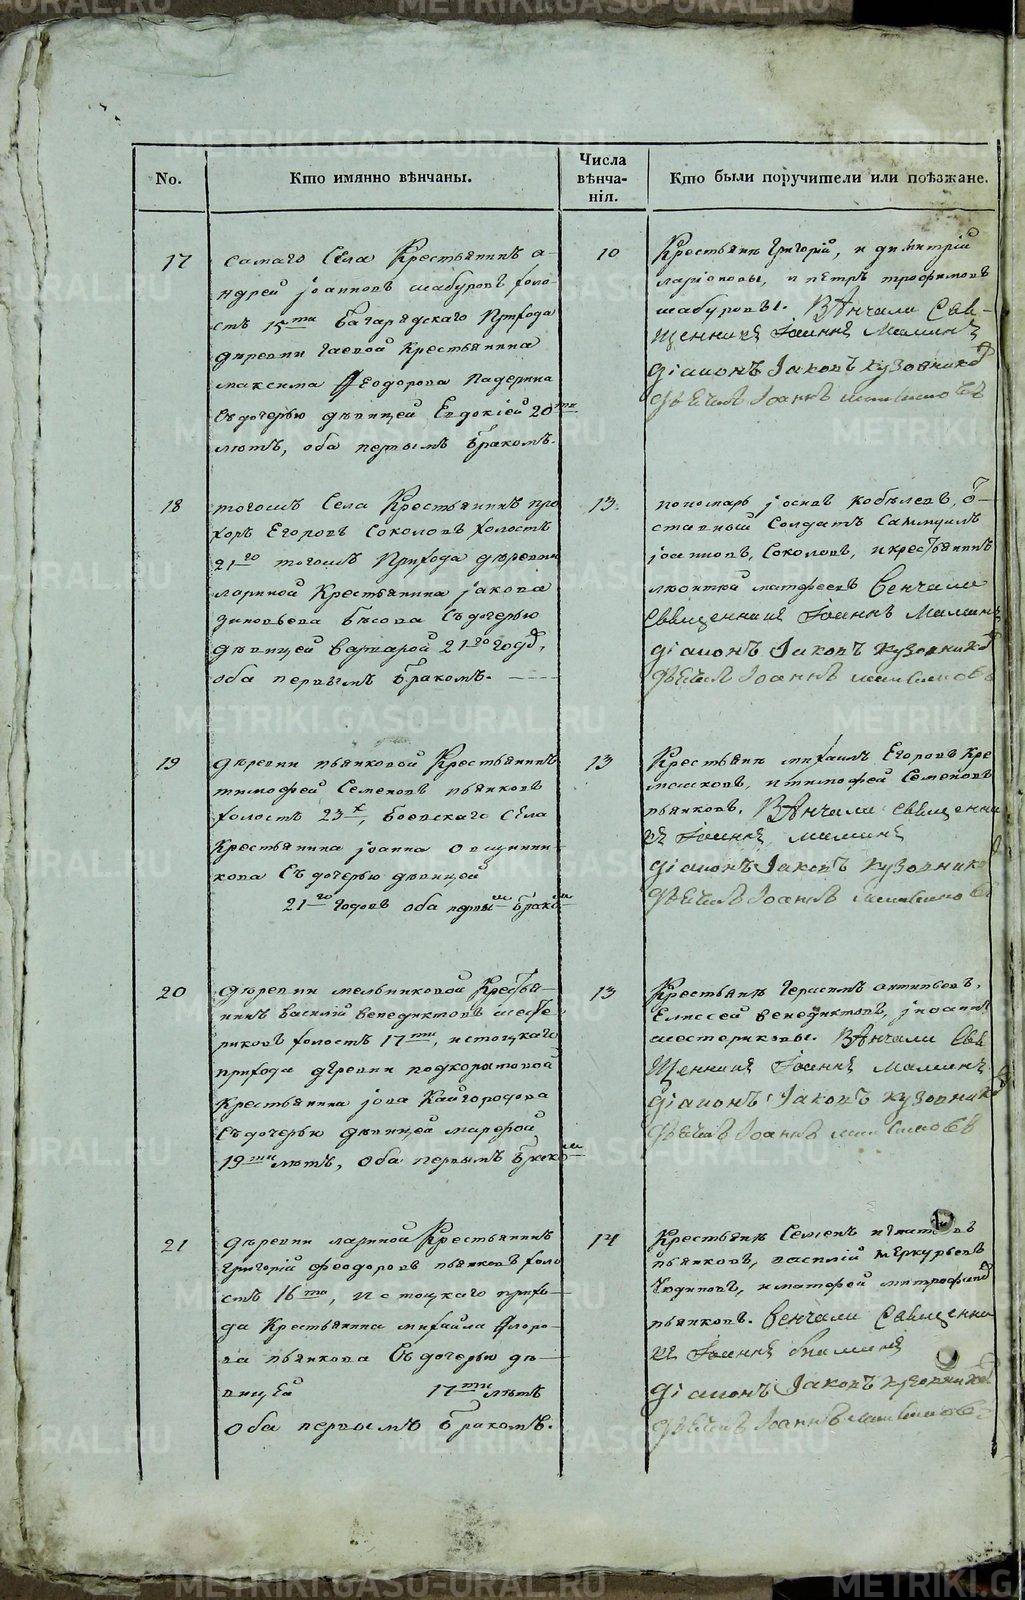 No.
Кто имянно вѣнчаны.
Числа
вѣнча-
нія.
Кто были поручители или поѣзжане.
17
самаго Села Крестьянинъ а-
ндрей іоанновъ шабуровъ холо-
стъ 15ти Багарядскаго Прихода
деревни гаевой Крестьянина
максима Феодорова Падерина
Съ дочерью дѣвицей Евдокіей 20ти
лѣтъ, оба первымъ бракомъ.
10
Крестьяне Григорій, и димитрій
ларіоновы, и петръ трофимовъ
шабуровы. Вѣнчали Свя-
щенникъ Іоаннъ Маминъ
діаконъ Іаковъ Кузовниковъ
Іоаннъ
18
тогожъ Села Крестьянинъ про
хоръ Егоровъ Соколовъ холостъ
21го тогожъ Прихода деревни
лариной Крестьянина іакова
зиновьева бѣсова Съ дочерью
дѣвицей Варварой 21го года,
оба первымъ бракомъ.
13.
пономарь іосифъ кобылевъ, о-
ставный Солдатъ Саммуилъ
іоанновъ, Соколовъ, и крестьянинъ
матфеевъ Венчали
Священникъ Іоаннъ Маминъ
діаконъ Іаковъ Кузовниковъ
Іоаннъ
19
деревни пьянковой Крестьянинъ
тимофей Семеновъ пьянковъ
холостъ 23х, боевскаго Села
Крестьянина іоанна Овчинни-
кова Съ дочерью дѣвицей
21го годовъ оба первымъ бракомъ
13
Крестьяне михаилъ Егоровъ
и тимофей Семеновъ
пьянковъ. Вѣнчали Священни
къ Іоаннъ, маминъ
діаконъ Іаковъ Кузовников
Іоаннъ
20
деревни мельниковой Крестья-
нинъ василій венедиктовъ шесте
риковъ холостъ 17ти, истоцкаго
прихода деревни подкоратовой
Крестьянина іова Кайгородова
Съ дочерью дѣвицей марфой
19ти лѣтъ, Оба первымъ бракомъ
13
Крестьяне Герасимъ антиповъ,
Елиссей венедиктовъ, іоаннъ
шестериковы. Вѣнчали Свя
щенникъ Іоаннъ маминъ
діаконъ Іаковъ Кузовников
Іоаннъ
21
деревни лариной Крестьянинъ
григорій феодоровъ пьянковъ холо
стъ 16ти, Истоцкаго прихо-
да Крестьянина михайла Флоро-
ва пьянкова Съ дочерью дѣ-
вицей 17ти лѣтъ
Оба первымъ бракомъ.
14
Крестьяне Семенъ игнатовъ
пьянковъ, василій меркурьевъ
Юдиновъ, и матфей митрофановъ
пьянковъ. Венчали Священни
къ Іоаннъ Маминъ
діаконъ Іаковъ Кузовников
Іоаннъ
METRIKI.GASO-URAL.RU